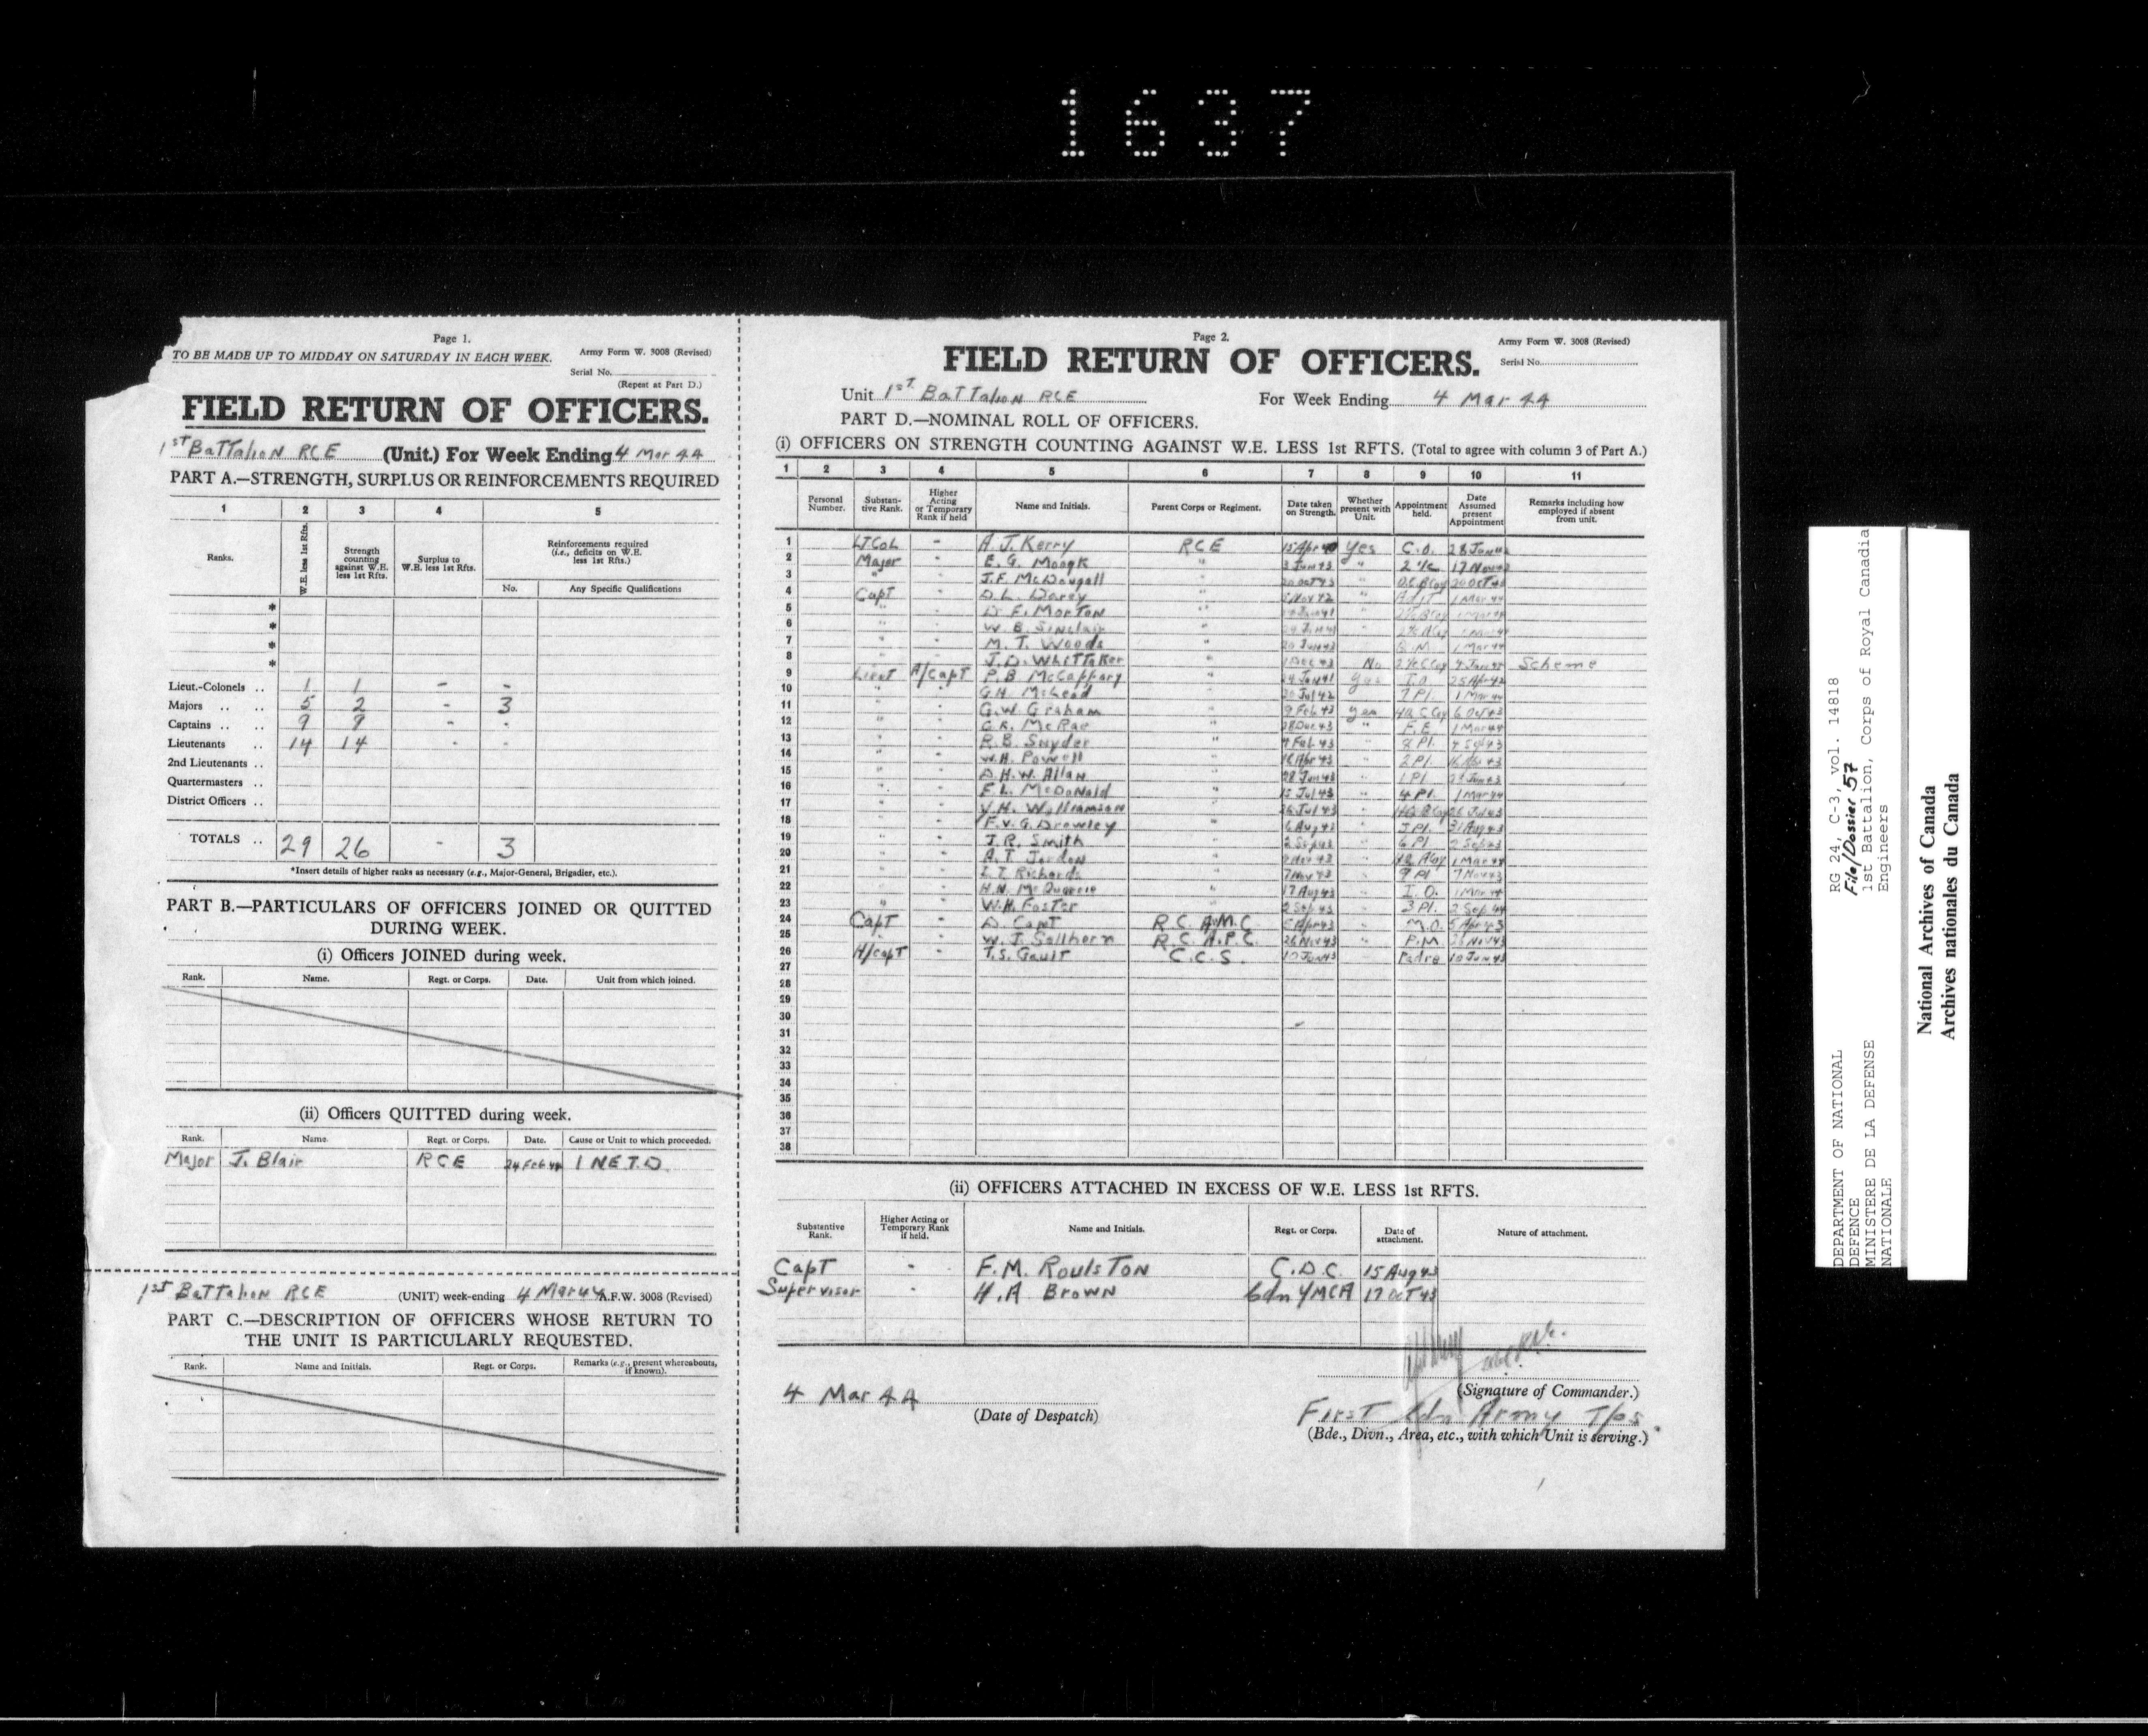 1637
Page 1.
TO BE MADE UP TO MIDDAY ON SATURDAY IN EACH WEEK.
Army Form W. 3008 (Revised)
Serial No.
(Repeat at Part D.)
FIELD RETURN OF OFFICERS.
1ST Battalion RCE (Unit.) For Week Ending 4 Mar 44
PART A.—STRENGTH, SURPLUS OR REINFORCEMENTS REQUIRED
1 2 3 4 5
Ranks. W.E. less 1st Rfts. Strength counting against W.E. less 1st Rfts. Surplus to W.E. less 1st Rfts. Reinforcements required (i.e., deficits on W.E. less 1st Rfts.)
No. Any Specific Qualifications
*
*
*
*
Lieut.-Colonels .. 1 1 - -
Majors .. .. 5 2 - 3
Captains .. .. 9 9 - -
Lieutenants .. 14 14 - -
2nd Lieutenants ..
Quartermasters ..
District Officers ..
TOTALS .. 29 26 - 3
*Insert details of higher ranks as necessary (e.g., Major-General, Brigadier, etc.).
PART B.—PARTICULARS OF OFFICERS JOINED OR QUITTED
DURING WEEK.
(i) Officers JOINED during week.
Rank. Name. Regt. or Corps. Date. Unit from which joined.
(ii) Officers QUITTED during week.
Rank. Name. Regt. or Corps. Date. Cause or Unit to which proceeded.
Major J. Blair RCE 24 Feb 44 1 NETD
1st Battalion RCE (UNIT) week-ending 4 Mar 44 A.F.W. 3008 (Revised)
PART C.—DESCRIPTION OF OFFICERS WHOSE RETURN TO
THE UNIT IS PARTICULARLY REQUESTED.
Rank. Name and Initials. Regt. or Corps. Remarks (e.g., present whereabouts, if known).
Page 2.
Army Form W. 3008 (Revised)
FIELD RETURN OF OFFICERS.
Serial No.
Unit 1ST Battalion RCE For Week Ending 4 Mar 44
PART D.—NOMINAL ROLL OF OFFICERS.
(i) OFFICERS ON STRENGTH COUNTING AGAINST W.E. LESS 1st RFTS. (Total to agree with column 3 of Part A.)
1 2 3 4 5 6 7 8 9 10 11
Personal Number. Substan-tive Rank. Higher Acting or Temporary Rank if held Name and Initials. Parent Corps or Regiment. Date taken on Strength. Whether present with Unit. Appointment held. Date Assumed present Appointment Remarks including how employed if absent from unit.
1 LTCOL - A J. Kerry RCE 15 Apr 40 Yes C.O. 28 Jan
2 Major - E. G. Moogk " 3 Jun 43 " 2 i/c 17 Nov 43
3 " - J.F. McDougall " 20 Oct 43 " O.C. B Coy 20 Oct 43
4 Capt - D. L. Davey " 5 Nov 42 " Adjt 1 Mar 44
5 " - D F. Morton " " 2i/c B Coy 1 Mar 44
6 " - W. B. Sinclair " " 2i/c A Coy 1 Mar 44
7 " - M. T. Woods " 20 Jun 43 " Q.M. 1 Mar 44
8 " - J.D. Whittaker " 1 Dec 43 No 2i/c C Coy Scheme
9 Lieut A/Capt P.B McCaffery " 24 Jan 41 Yes T.O. 25 Apr 42
10 " - G.H. McLead " 20 Jul 42 7 Pl. 1 Mar 44
11 " - G.W. Graham " 9 Feb 43 Yes HQ C Coy 6 Oct 43
12 " - C.R. McRae " 28 Dec 43 " F.E. 1 Mar 44
13 " - R.B. Snyder " 9 Feb 43 " 8 Pl. 43
14 " - W.H. Powell " 16 Apr 43 " 2 Pl. 16 Apr 43
15 " - D.H.W. Allan " 28 Jun 43 " 1 Pl. Jun 43
16 " - F.L. McDonald " 15 Jul 43 " 4 Pl. 1 Mar 44
17 " - V.H. Williamson " 26 Jul 43 " HQ B Coy 26 Jul 43
18 " - F.V.G. Drawley " 6 Aug 43 " Pl. 31 Aug 43
19 " - J.R. Smith " 2 Sep 43 " 6 Pl. 2 Sep 43
20 " - A.T. Jordon " Nov 43 " HQ A Coy 1 Mar 44
21 " - Richards " 7 Nov 43 " 9 Pl 7 Nov 43
22 " - H.N. McQuarrie " 17 Aug 43 " I.O. 1 Mar 44
23 " - W.H. Foster " 2 Sep 43 " 3 Pl. 2 Sep 44
24 Capt - D. Cant R.C.A.M.C. 5 Apr 43 " M.O. 5 Apr 43
25 " - W. J. Sellhorn R.C.A.P.C. 26 Nov 43 " P.M 26 Nov 43
26 H/Capt - T.S. Gault C.C.S. 10 Jun 43 Padre 10 Jun 43
27
28
29
30
31
32
33
34
35
36
37
38
(ii) OFFICERS ATTACHED IN EXCESS OF W.E. LESS 1st RFTS.
Substantive Rank. Higher Acting or Temporary Rank if held. Name and Initials. Regt. or Corps. Date of attachment. Nature of attachment.
Capt - F.M. Roulston C.D.C. 15 Aug 43
Supervisor - H.A Brown Cdn YMCA 17 Oct 43
4 Mar 44
(Date of Despatch)
(Signature of Commander.)
First Cdn Army Tps.
(Bde., Divn., Area, etc., with which Unit is serving.)
DEPARTMENT OF NATIONAL
DEFENCE
MINISTERE DE LA DEFENSE
NATIONALE
RG 24, C-3, vol. 14818
File/Dossier 57
1st Battalion, Corps of Royal Canadian
Engineers
National Archives of Canada
Archives nationales du Canada